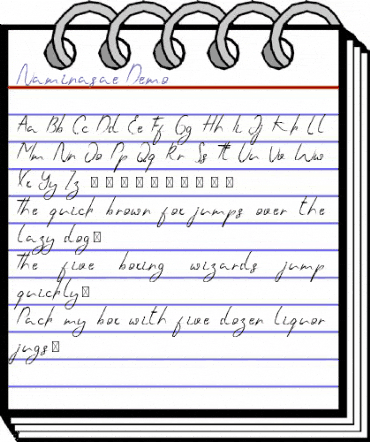 Naminasae Demo
Aa Bb Cc Dd Ee Ff Gg Hh Ii Jj Kk Ll
Mm Nn Oo Pp Qq Rr Ss Tt Uu Vv Ww
Xx Yy Zz □ □ □ □ □ □ □ □ □ □
The quick brown fox jumps over the
lazy dog□
The five boxing wizards jump
quickly□
Pack my box with five dozen liquor
jugs□